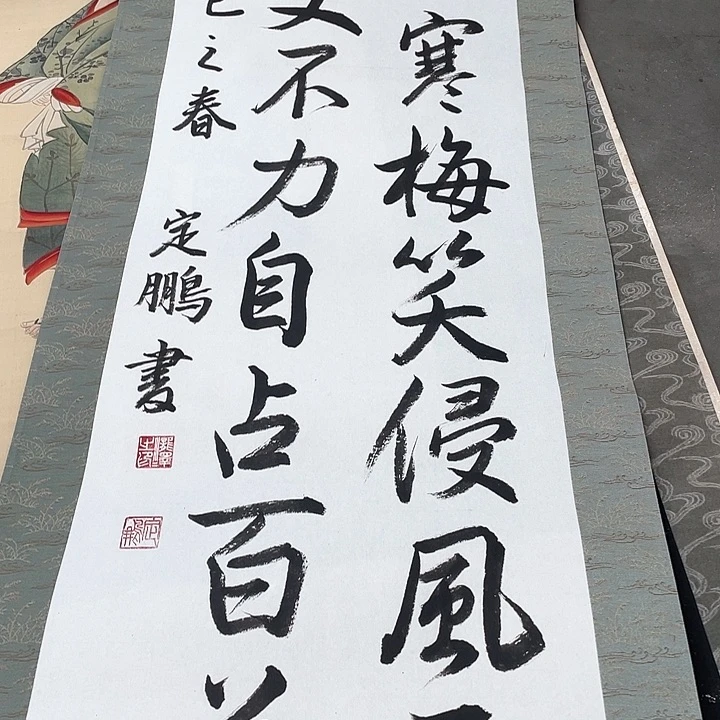 寒梅笑侵風
不力自占百
之春
定鵬書